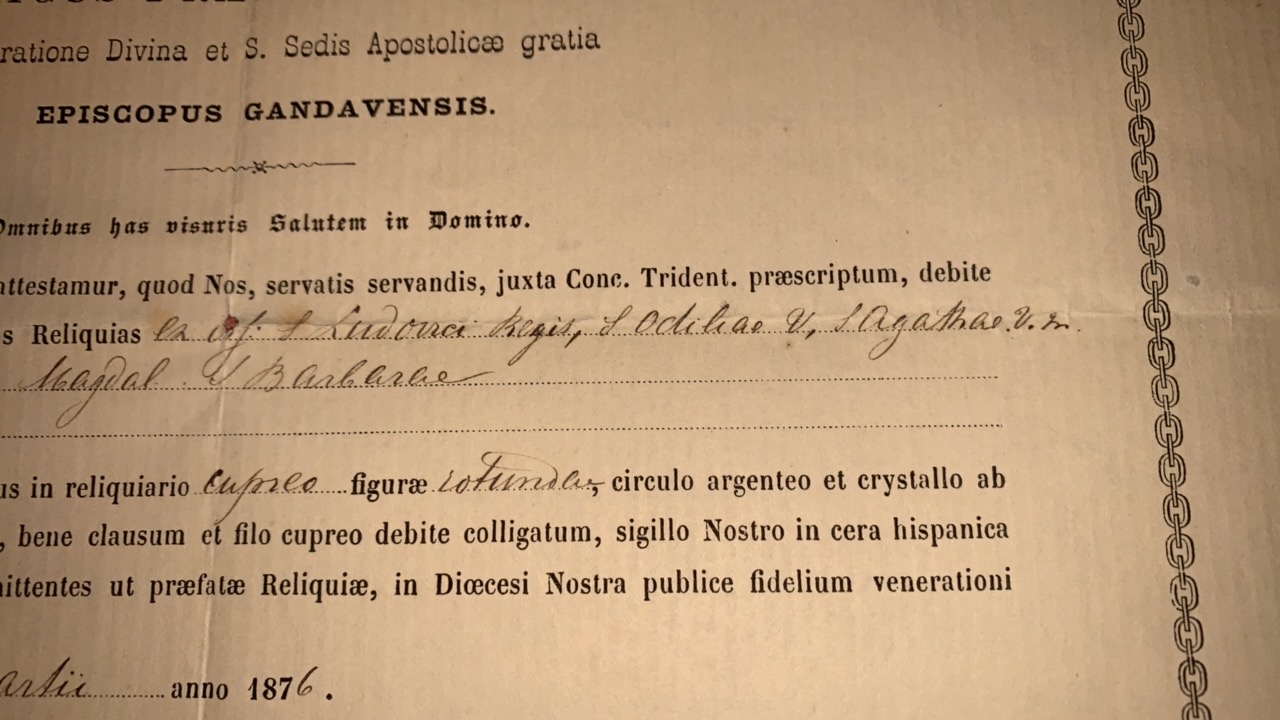 ratione Divina et S. Sedis Apostolicæ gratia
EPISCOPUS GANDAVENSIS.
Omnibus has visuris Salutem in Domino.
attestamur, quod Nos, servatis servandis, juxta Conc. Trident. præscriptum, debite
s Reliquias ex S Ludovici Regis, S Odiliae V, S Agathae V. M
Magdal. S Barbarae
us in reliquiario cupreo figuræ rotundæ, circulo argenteo et crystallo ab
, bene clausum et filo cupreo debite colligatum, sigillo Nostro in cera hispanica
nittentes ut præfatæ Reliquiæ, in Diœcesi Nostra publice fidelium venerationi
artii anno 1876.